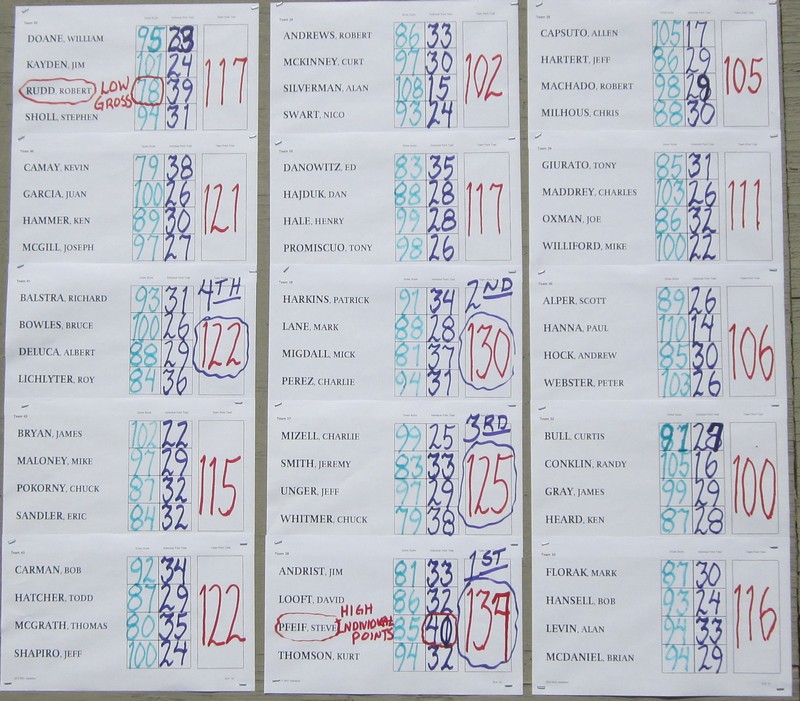 DOANE, WILLIAM 95 23
KAYDEN, JIM 101 24
RUDD, ROBERT LOW GROSS 78 39
SHOLL, STEPHEN 94 31
117
ANDREWS, ROBERT 86 33
MCKINNEY, CURT 97 30
SILVERMAN, ALAN 108 15
SWART, NICO 93 24
102
CAPSUTO, ALLEN 105 17
HARTERT, JEFF 86 29
MACHADO, ROBERT 98 29
MILHOUS, CHRIS 88 30
105
CAMAY, KEVIN 79 38
GARCIA, JUAN 100 26
HAMMER, KEN 89 30
MCGILL, JOSEPH 97 27
121
DANOWITZ, ED 83 35
HAJDUK, DAN 88 28
HALE, HENRY 99 28
PROMISCUO, TONY 98 26
117
GIURATO, TONY 85 31
MADDREY, CHARLES 103 26
OXMAN, JOE 86 32
WILLIFORD, MIKE 100 22
111
BALSTRA, RICHARD 93 31
BOWLES, BRUCE 100 26
DELUCA, ALBERT 88 29
LICHLYTER, ROY 84 36
4TH
122
HARKINS, PATRICK 91 34
LANE, MARK 88 28
MIGDALL, MICK 81 37
PEREZ, CHARLIE 94 31
2ND
130
ALPER, SCOTT 89 26
HANNA, PAUL 110 14
HOCK, ANDREW 85 30
WEBSTER, PETER 103 26
106
BRYAN, JAMES 102 22
MALONEY, MIKE 97 29
POKORNY, CHUCK 87 32
SANDLER, ERIC 84 32
115
MIZELL, CHARLIE 99 25
SMITH, JEREMY 83 33
UNGER, JEFF 97 29
WHITMER, CHUCK 79 38
3RD
125
BULL, CURTIS 91
CONKLIN, RANDY 105 16
GRAY, JAMES 99 29
HEARD, KEN 87 28
100
CARMAN, BOB 92 34
HATCHER, TODD 87 29
MCGRATH, THOMAS 80 35
SHAPIRO, JEFF 100 24
122
ANDRIST, JIM 81 33
LOOFT, DAVID 86 32
PFEIF, STEVE HIGH INDIVIDUAL POINTS 85 40
THOMSON, KURT 94 32
1ST
137
FLORAK, MARK 87 30
HANSELL, BOB 93 24
LEVIN, ALAN 94 33
MCDANIEL, BRIAN 94 29
116